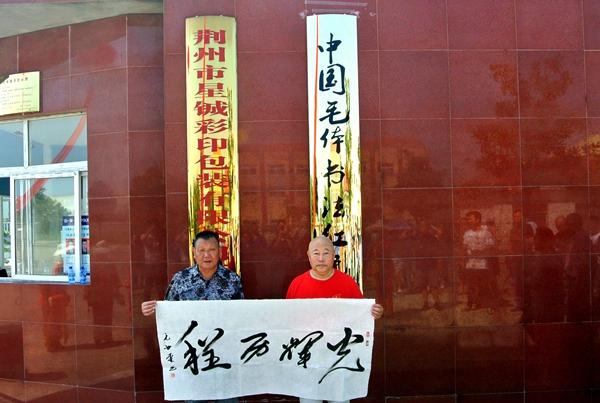 荆州市星铖彩印包装有限
中国毛体书法红
光辉历程